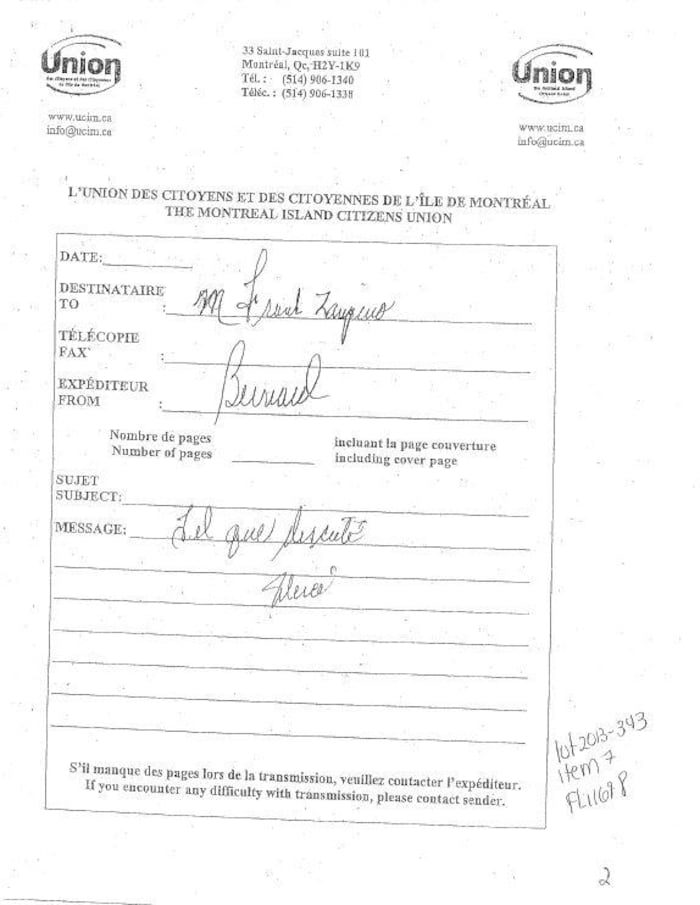 Union
Des citoyens et des citoyennes
de l'île de Montréal
www.ucim.ca
info@ucim.ca
33 Saint-Jacques suite 101
Montréal, Qc, H2Y-1K9
Tél. : (514) 906-1340
Téléc. : (514) 906-1338
Union
Montreal Island
Citizens Union
www.ucim.ca
info@ucim.ca
L'UNION DES CITOYENS ET DES CITOYENNES DE L'ÎLE DE MONTRÉAL
THE MONTREAL ISLAND CITIZENS UNION
DATE:
DESTINATAIRE
TO : M Frank Zampino
TÉLÉCOPIE
FAX :
EXPÉDITEUR
FROM : Bernard
Nombre de pages incluant la page couverture
Number of pages including cover page
SUJET
SUBJECT:
MESSAGE: Tel que discuté
Merci
S'il manque des pages lors de la transmission, veuillez contacter l'expéditeur.
If you encounter any difficulty with transmission, please contact sender.
lot 2013-343
item 7
FL11698
2